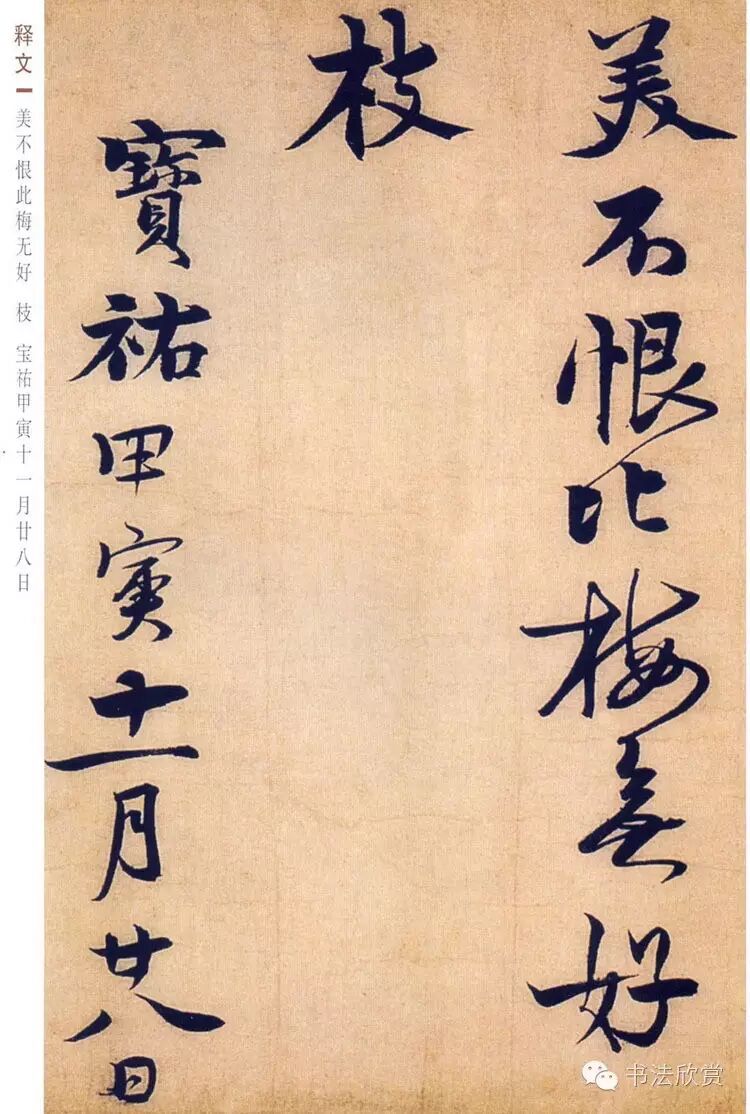 美不恨此梅無好
枝
寶祐甲寅十一月廿八日
释文
美不恨此梅无好 枝 宝祐甲寅十一月廿八日
书法欣赏